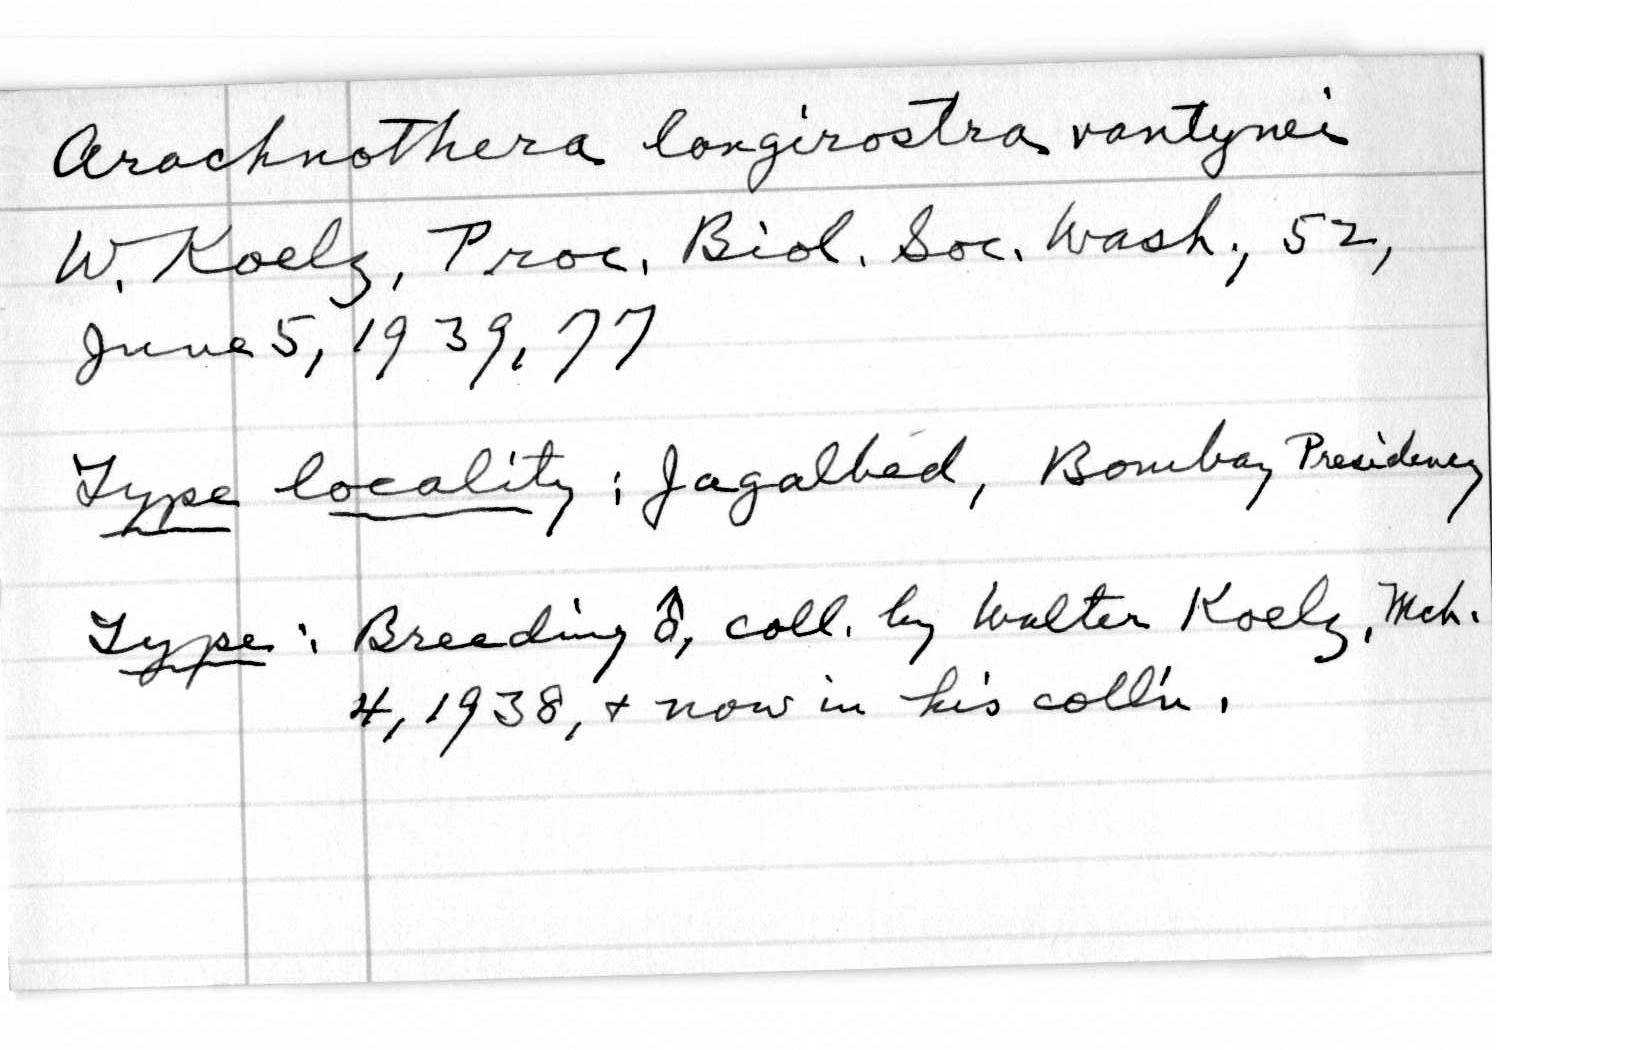 Arachnothera longirostra vantynei
W. Koelz, Proc. Biol. Soc. Wash., 52,
June 5, 1939, 77
Type locality: Jagalbed, Bombay Presidency
Type: Breeding ♂, coll. by Walter Koelz, Mch.
4, 1938, + now in his coll'n.